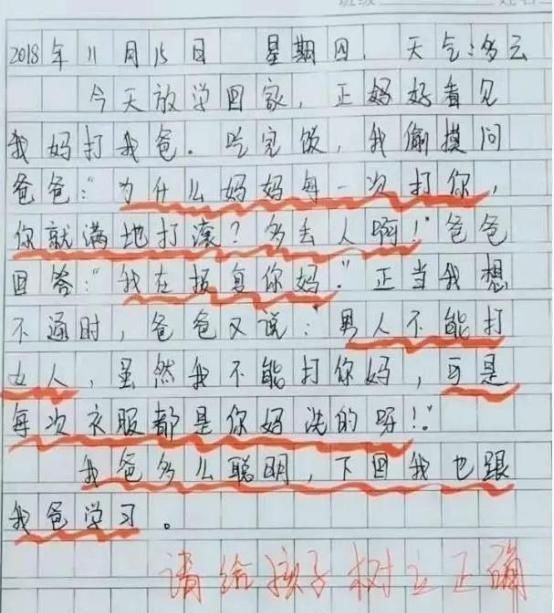 班级 姓名
2018年11月15日 星期四 天气:多云
今天放学回家,正妈好看见
我妈打我爸。吃完饭,我偷摸问
爸爸:“为什么妈妈每一次打你,
你就满地打滚?多丢人啊!”爸爸
回答:“我在报复你妈。”正当我想
不通时,爸爸又说:男人不能打
女人,虽然我不能打你妈,可是
每次衣服都是你妈洗的呀!”
我爸多么聪明,下回我也跟
我爸学习。
请给孩子树立正确